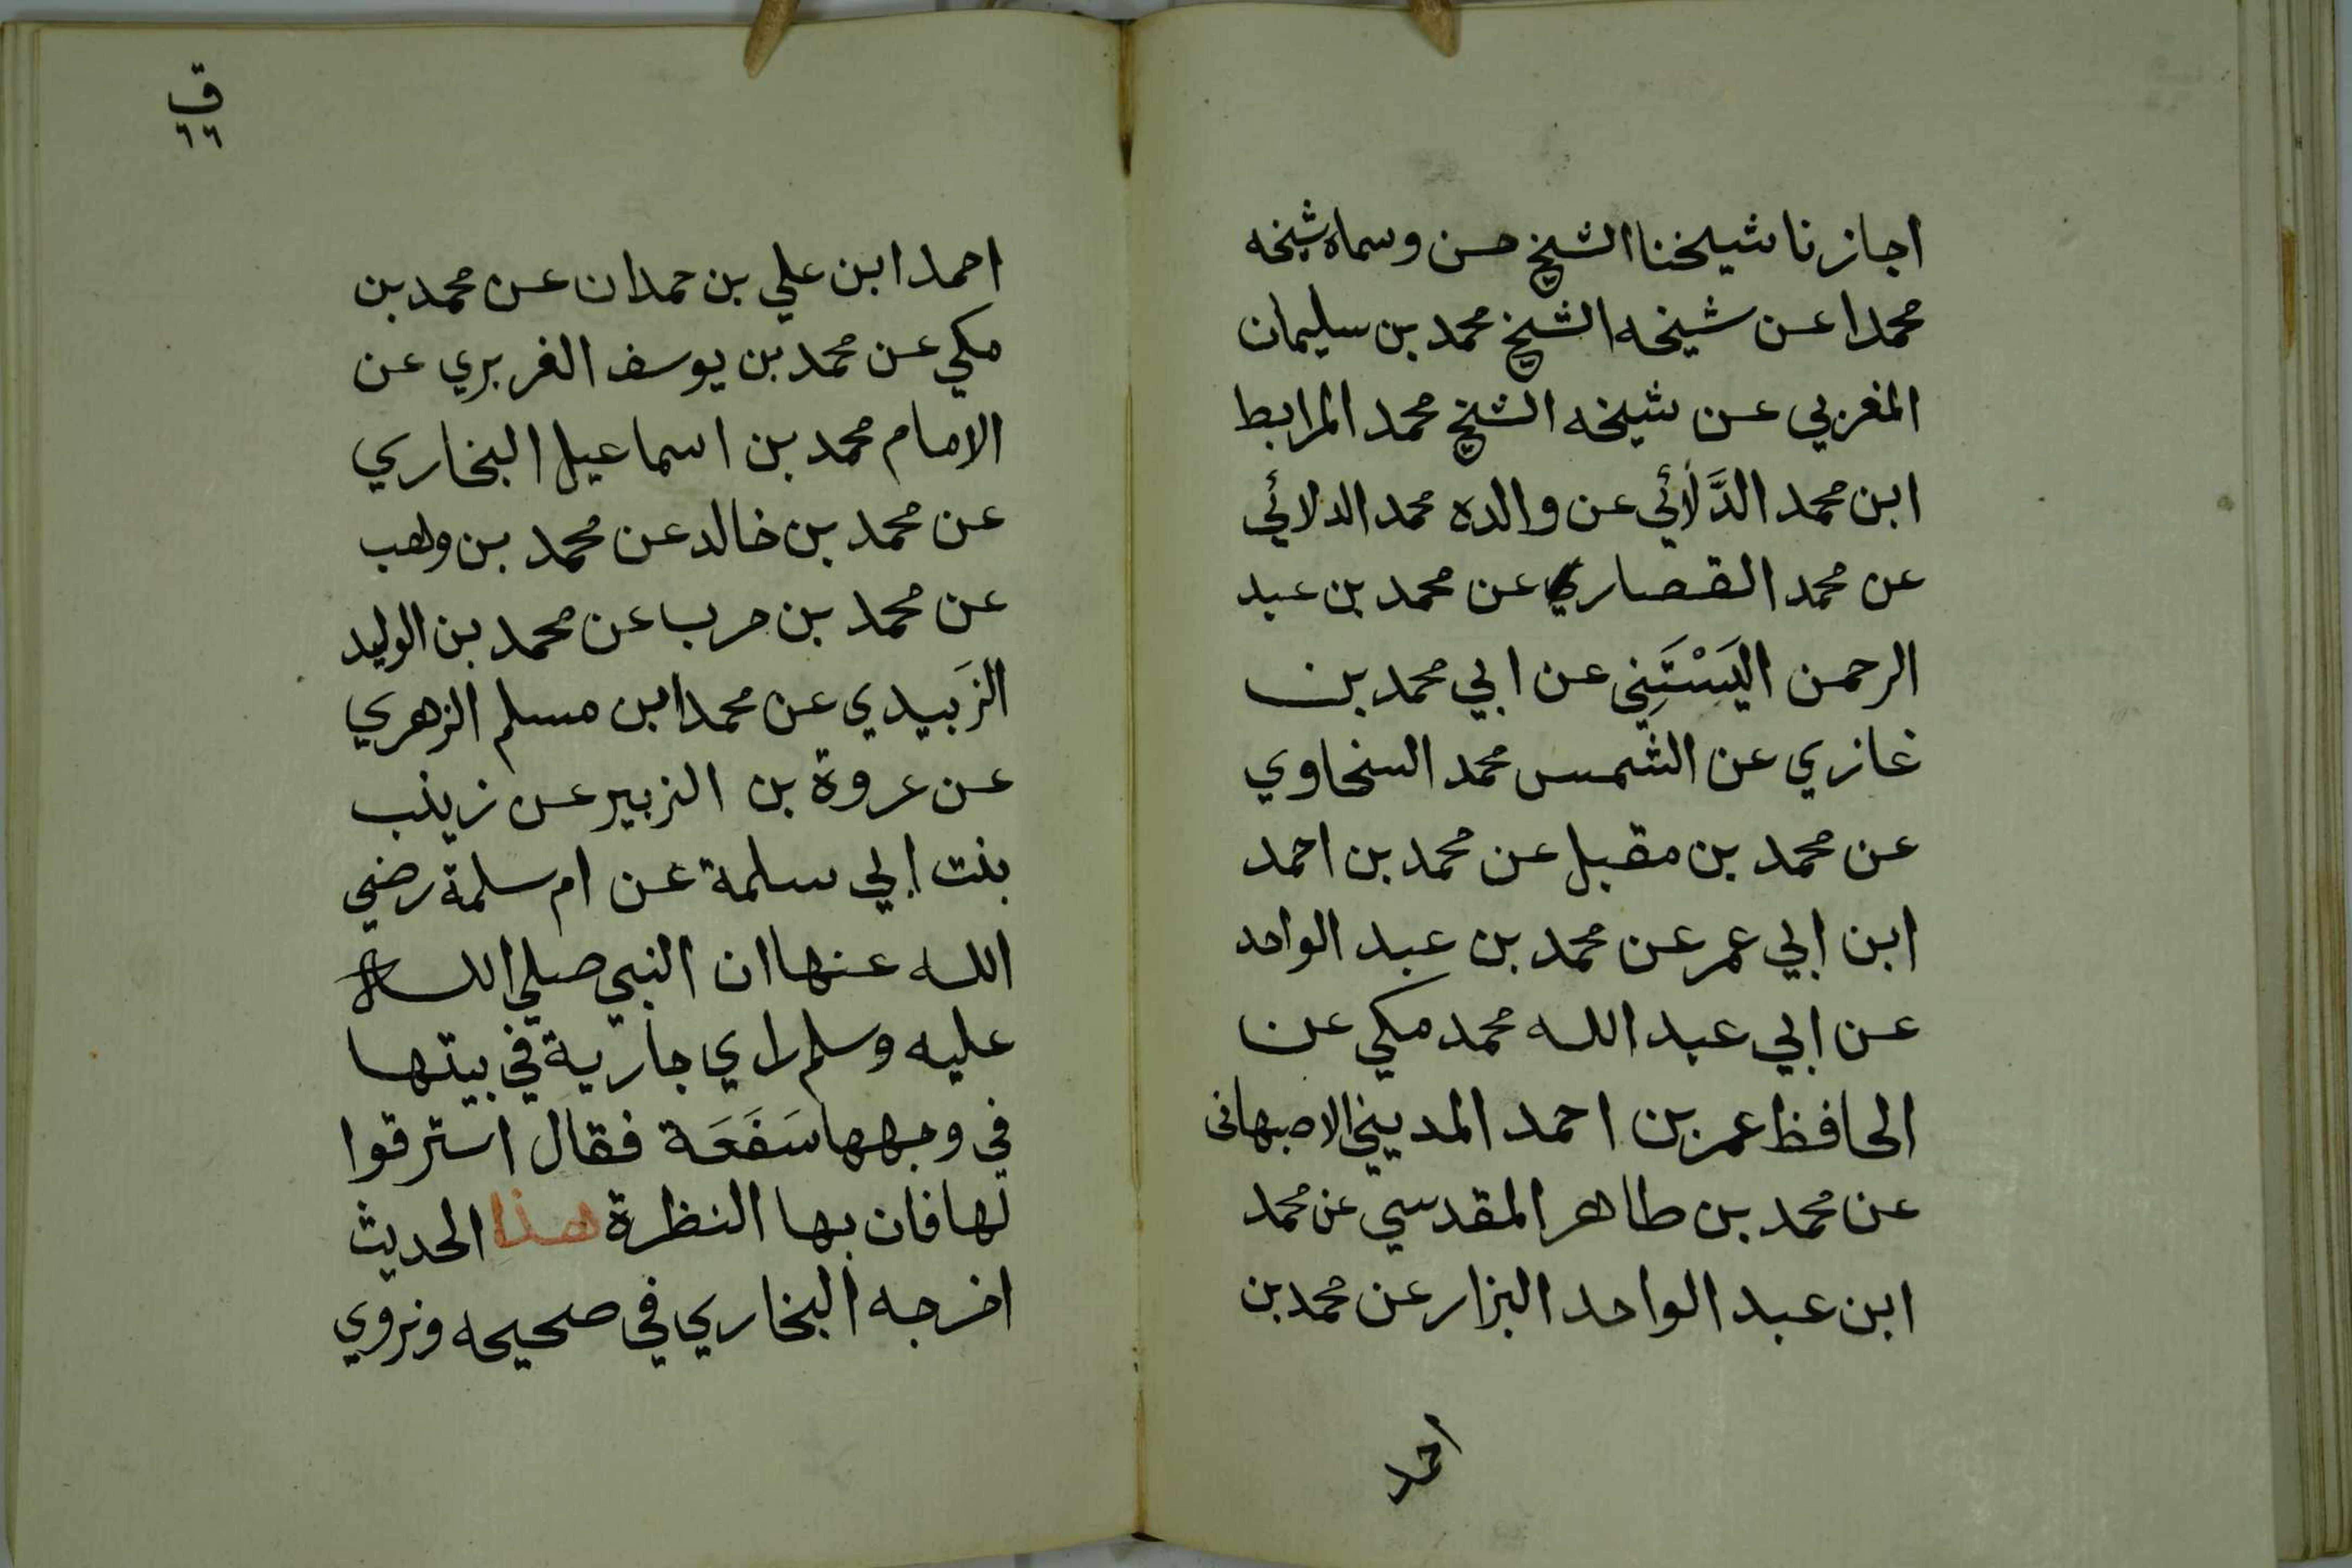 اجازنا شيخنا الشيخ حسن وسماه شيخه
محمدا عن شيخه الشيخ محمد بن سليمان
المغربي عن شيخه الشيخ محمد المرابط
ابن محمد الدَّلَائي عن والده محمد الدلائي
عن محمد القصاري عن محمد بن عبد
الرحمن اليَسْتَنِي عن ابي محمد بن
غازي عن الشمس محمد السخاوي
عن محمد بن مقبل عن محمد بن احمد
ابن ابي عمر عن محمد بن عبد الواحد
عن ابي عبد الله محمد مكي عن
الحافظ عمر بن احمد المديني الاصبهانى
عن محمد بن طاهر المقدسي عن محمد
ابن عبد الواحد البزار عن محمد بن
احمد
ق
٦٦
احمد ابن علي بن حمدان عن محمد بن
مكي عن محمد بن يوسف الفربري عن
الامام محمد بن اسماعيل البخاري
عن محمد بن خالد عن محمد بن وهب
عن محمد بن حرب عن محمد بن الوليد
الزَبيدي عن محمد ابن مسلم الزهري
عن عروة بن الزبير عن زينب
بنت ابي سلمة عن ام سلمة رضي
الله عنها ان النبي صلي الله
عليه وسلم راي جارية في بيتها
في وجهها سَفَعَة فقال استرقوا
لها فان بها النظرة هذا الحديث
اخرجه البخاري في صحيحه ونروي